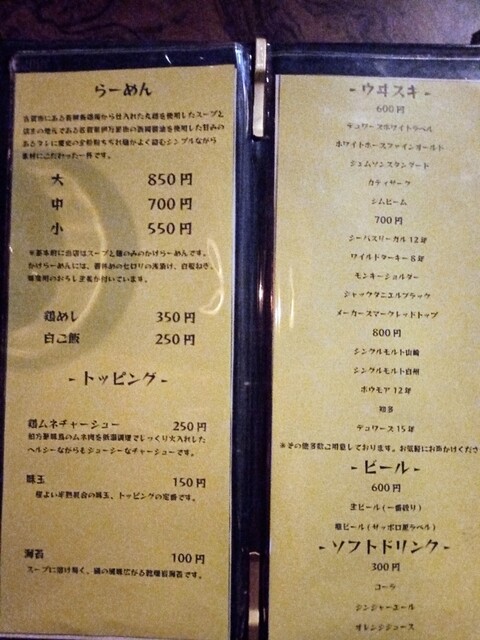 らーめん
大 850円
中 700円
小 550円
※基本的に当店はスープと麺のみのかけらーめんです。
鶏めし 350円
白ご飯 250円
-トッピング-
鶏ムネチャーシュー 250円
ムネ肉を低温調理でじっくり火入れした
ヘルシーながらもジューシーなチャーシューです。
味玉 150円
程よい半熟具合の味玉、トッピングの定番です。
海苔 100円
スープに溶け輝く、磯の風味広がる乾燥岩海苔です。
-ウヰスキ-
600円
デュワーズホワイトラベル
ホワイトホースファインオールド
ジェムソンスタンダード
カティサーク
ジムビーム
700円
シーバスリーガル12年
ワイルドターキー8年
モンキーショルダー
ジャックダニエルブラック
メーカーズマークレッドトップ
800円
シングルモルト山崎
シングルモルト白州
ボウモア12年
知多
デュワーズ15年
※その他多数ご用意しております。お気軽にお声かけくださ
-ビール-
600円
生ビール(一番搾り)
瓶ビール(サッポロ黒ラベル)
-ソフトドリンク-
300円
コーラ
ジンジャーエール
オレンジジュース